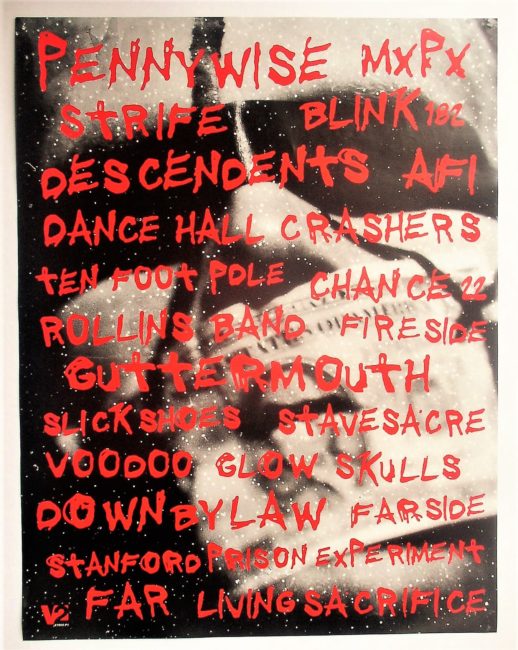 PENNYWISE MXPX
STRIFE BLINK 182
DESCENDENTS AFI
DANCE HALL CRASHERS
TEN FOOT POLE CHANCE 22
ROLLINS BAND FIRESIDE
GUTTERMOUTH
SLICK SHOES STAVESACRE
VOODOO GLOW SKULLS
DOWN BY LAW FARSIDE
STANFORD PRISON EXPERIMENT
FAR LIVING SACRIFICE